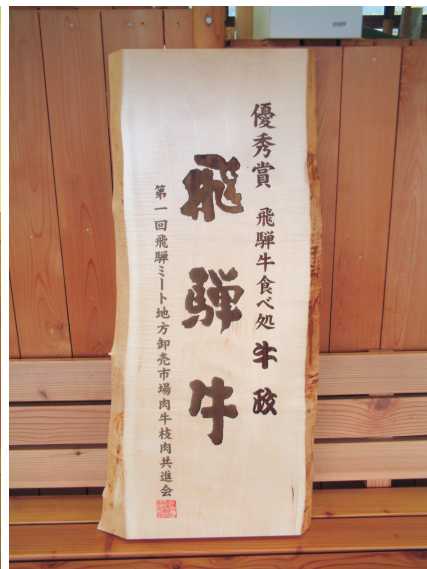 優秀賞 飛騨牛食べ処 牛政
飛騨牛
第一回飛騨ミート地方卸売市場肉牛枝肉共進会